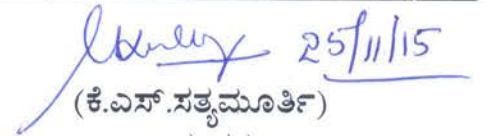 25/11/15
(ಕೆ.ಎಸ್.ಸತ್ಯಮೂರ್ತಿ)